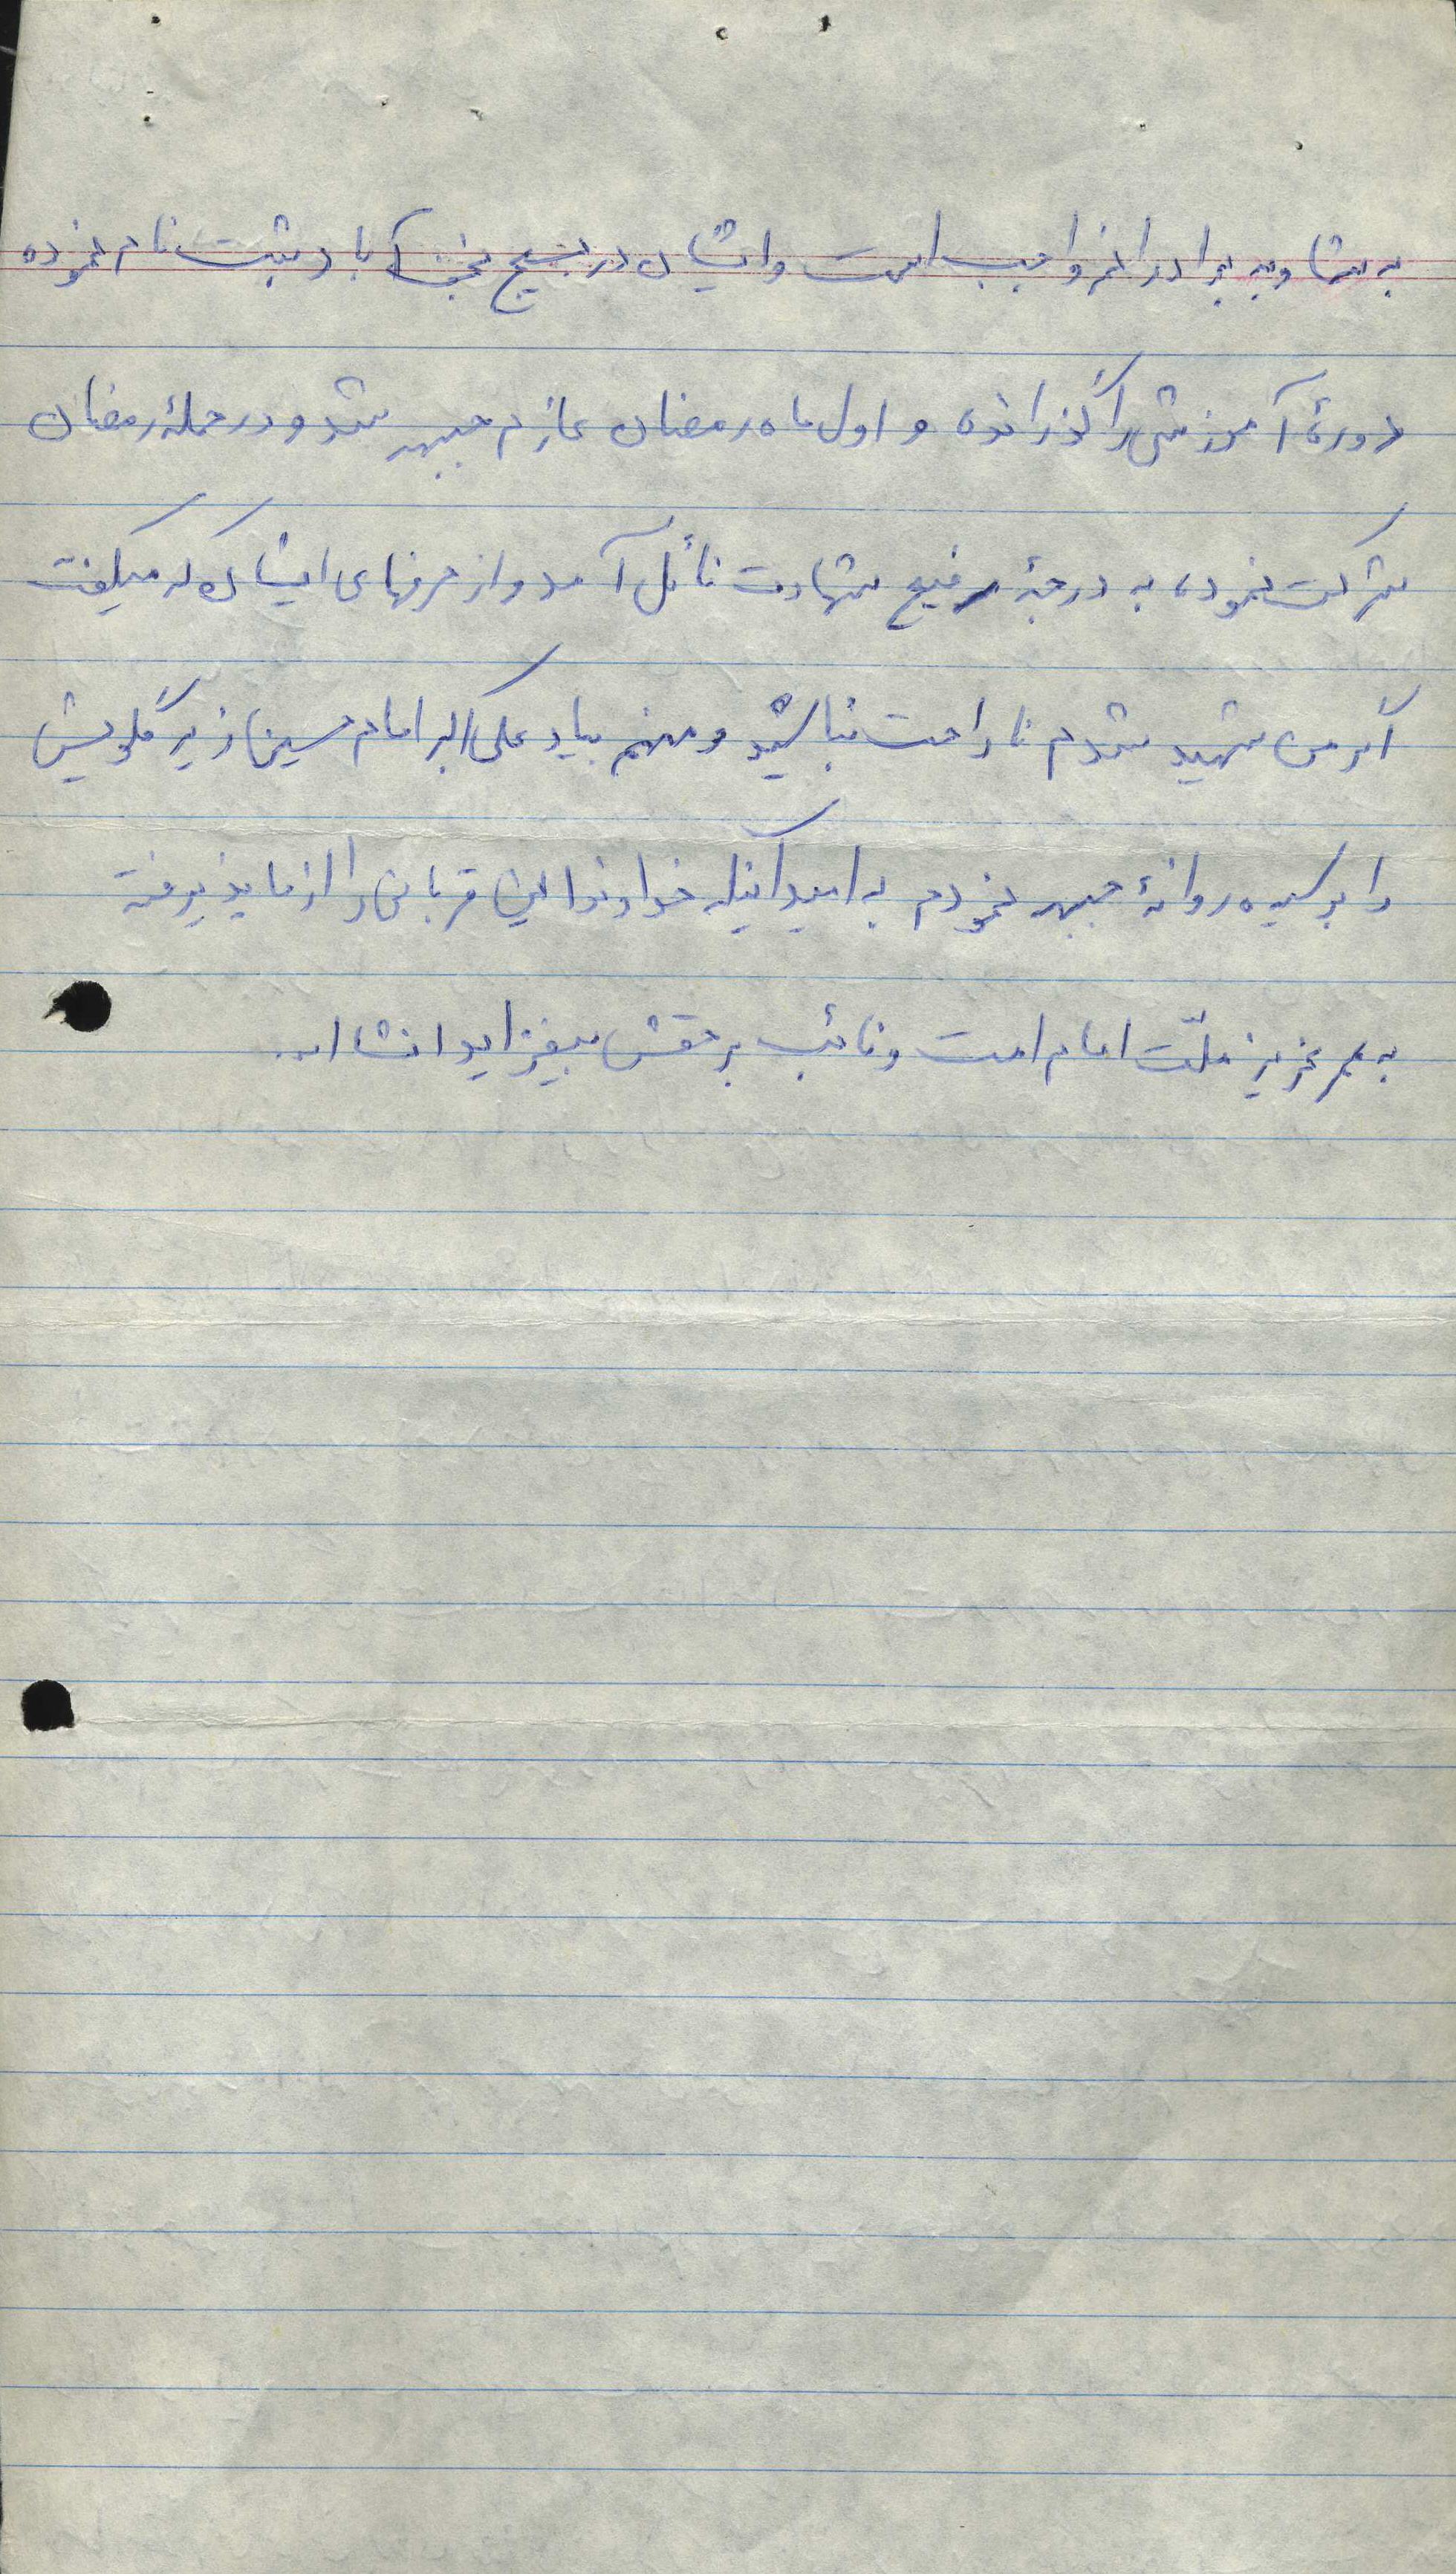 به شما و به برادرانم واجب است و ایشان در بسیج نجف آباد ثبت نام نموده
دورۀ آموزشی را گذرانده و اول ماه رمضان عازم جبهه شد و در حملۀ رمضان
شرکت نموده به درجۀ رفیع شهادت نائل آمد و از حرفهای ایشان که میگفت
اگر من شهید شدم ناراحت نباشید و منهم بیاد علی اکبر امام حسین زیر گلویش
را بوسیده روانۀ جبهه نمودم به امید اینکه خداوند این قربانی را از ما پذیرفته
به عمر عزیز ملّت امام امت و نائب بر حقش بیفزاید انشااله.